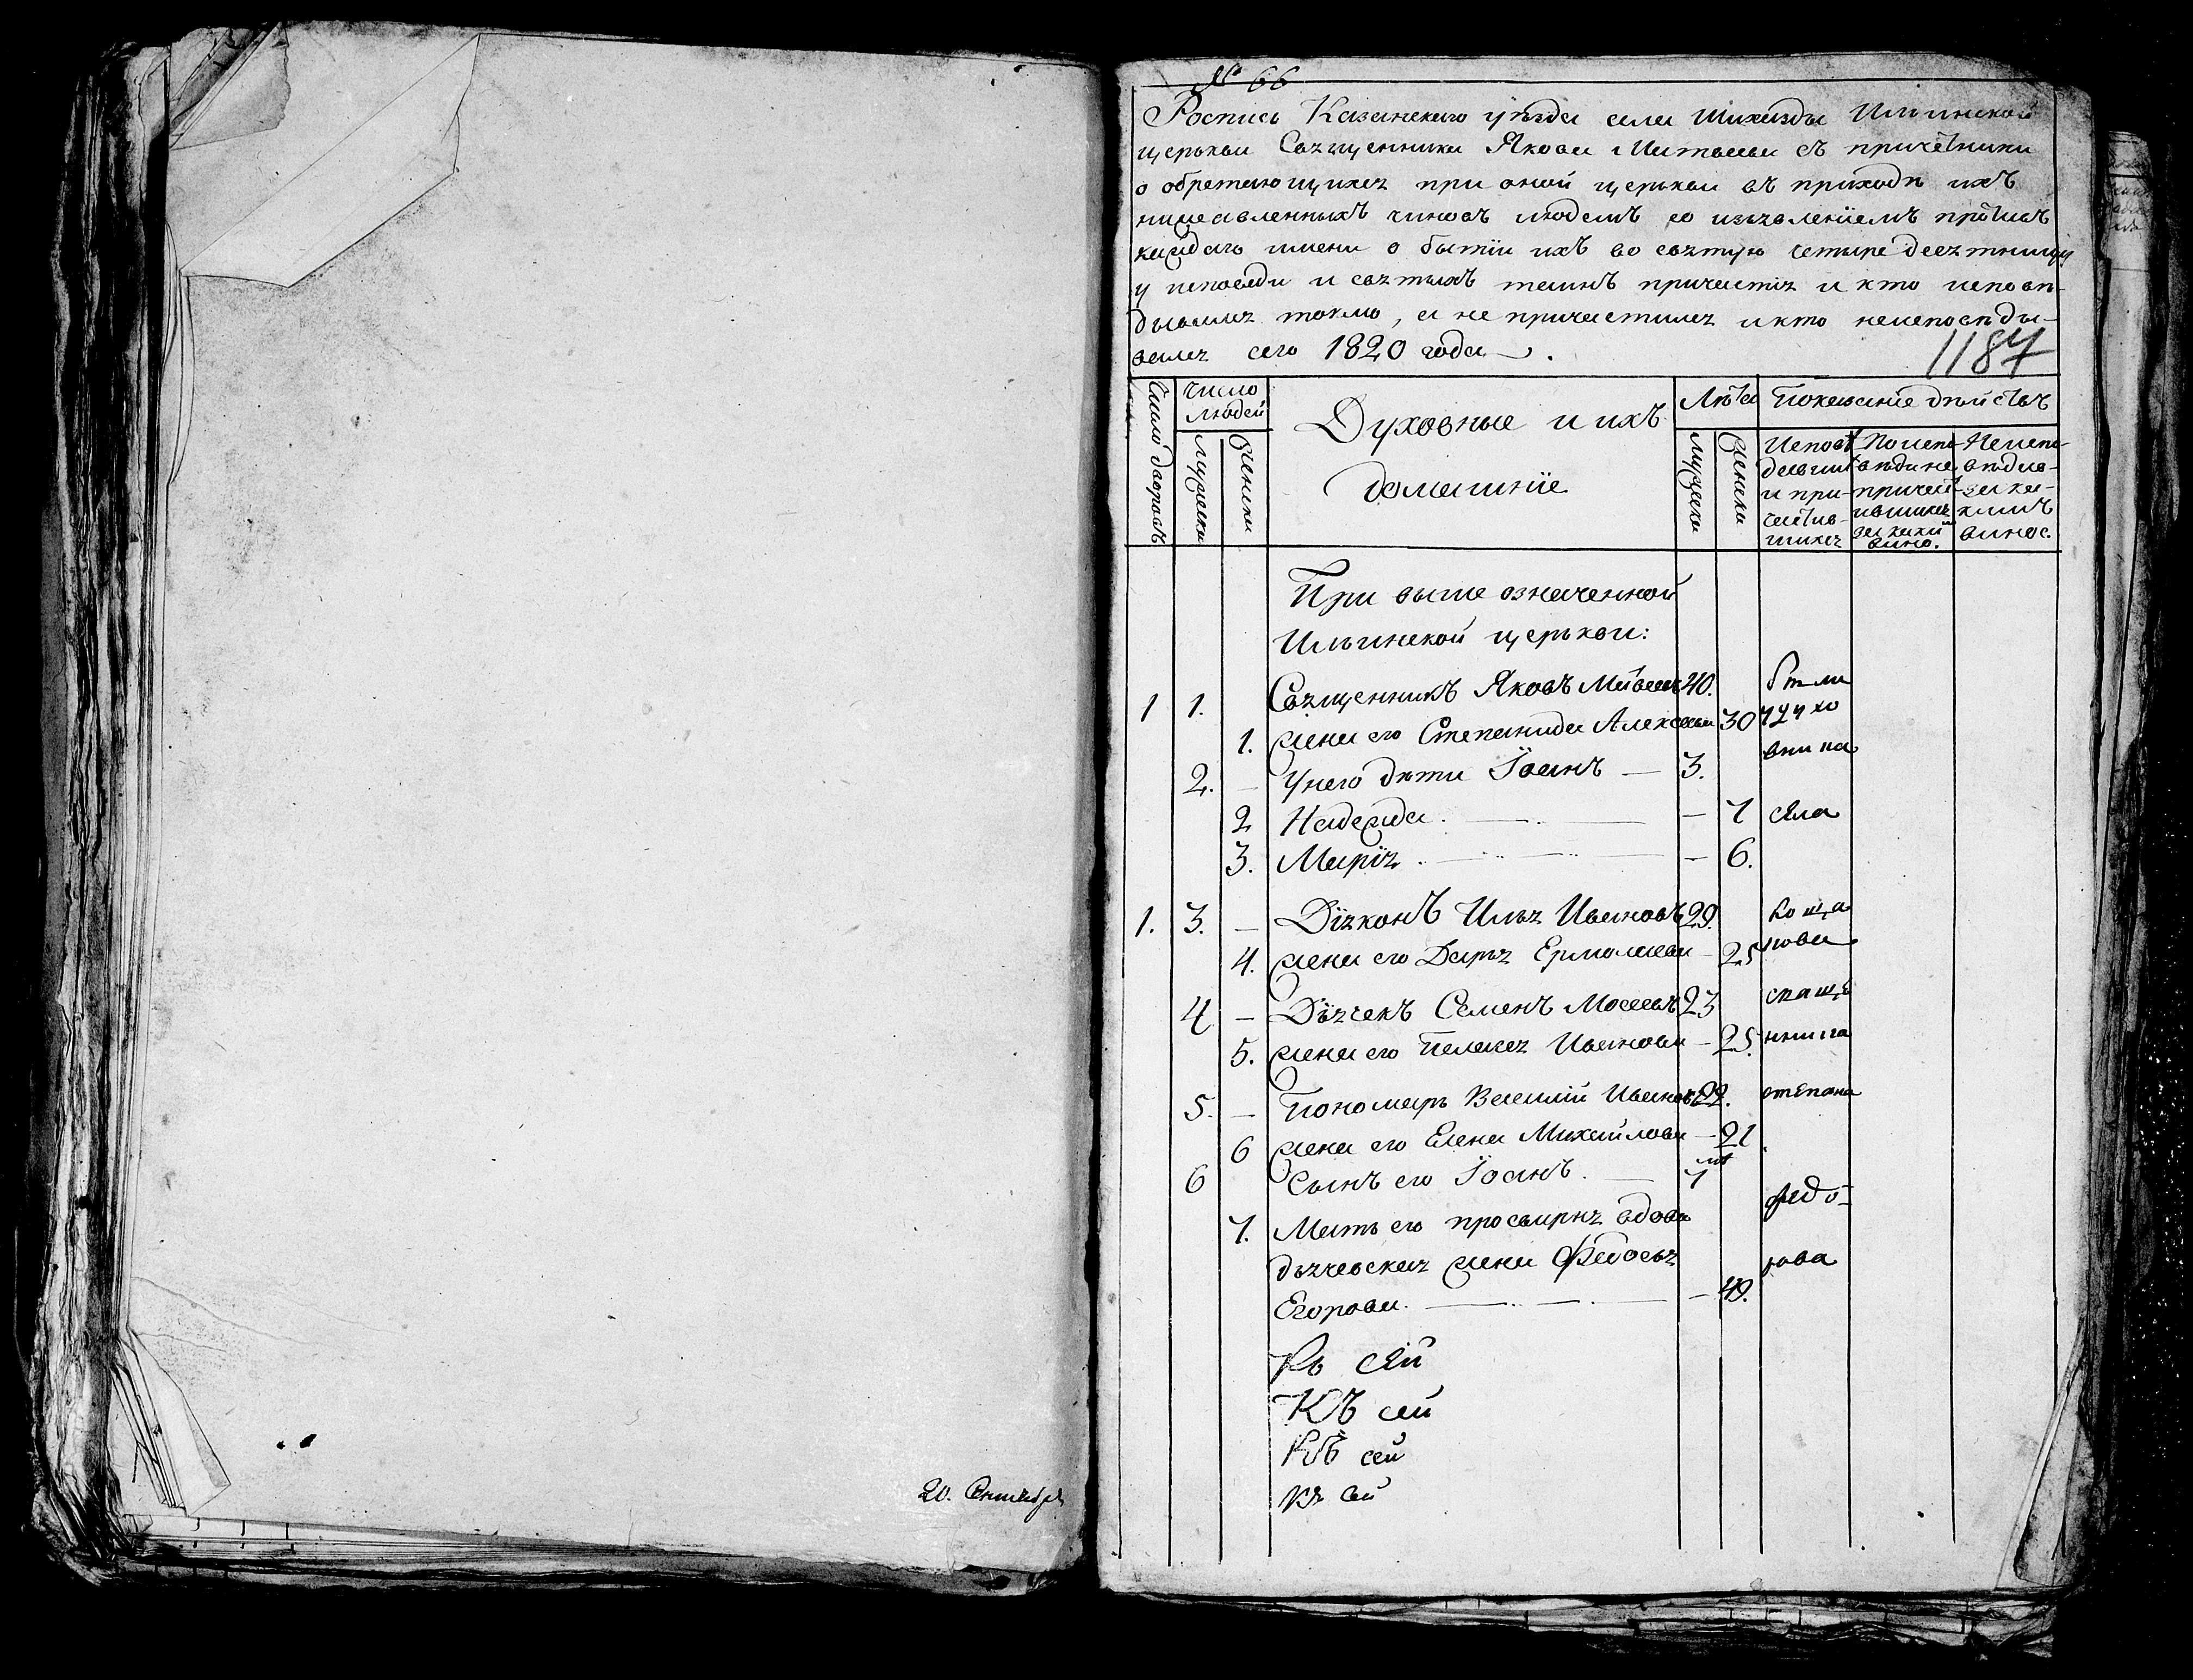 20. Сентября
№ 66
Роспись Казанскаго уѣзда села Шихазды Ильинской
церькви Священника Якова Матвеева съ причетники
о обретающихся при оной церькви въ приходѣ ихъ
нижеявленныхъ чиновъ людемъ со изъявленїемъ противъ
каждаго имени о бытїи ихъ во святую четыредесятницу
у исповѣди и святыхъ таинъ причастїя и кто исповѣ-
дывался токмо, а не причастился и кто неисповѣды-
вался сего 1820 года
1187
Число дворовъ
Число людей
Мужеска
Женска
Духовные и ихъ домашнїе
Лѣта
Мужеска
Женска
Показанїе дѣйствъ
Исповѣдавшихся и причастившихся
По исповѣди не причастившихся за какимъ вино.
Неисповѣдавшихся за какимъ винос.
При выше означенной
Ильинской церькви:
1 1. Священникъ Яковъ Матвеевъ 40.
1. жена его Степанида Алексеева 30
2. — У него дѣти Їоанъ — 3.
2 Надежда. — 7
3. Марїя — 6.
1. 3. — Дїяконъ Илья Ивановъ 29.
4. жена его Дарья Ермолаева — 25
4 — Дьячекъ Семенъ Мосеевъ 23
5. жена его Пелагея Иванова — 25.
5. — Пономарь Василїй Ивановъ 22.
6 жена его Елена Михайлова — 21
6 Сынъ его Їоанъ. — 1
7. Мать его просвирня вдова
дьячевская жена Федосья
Егорова. — 49.
села
степана
федо-
рова
Къ сей
Къ сей
Къ сей
Къ сей